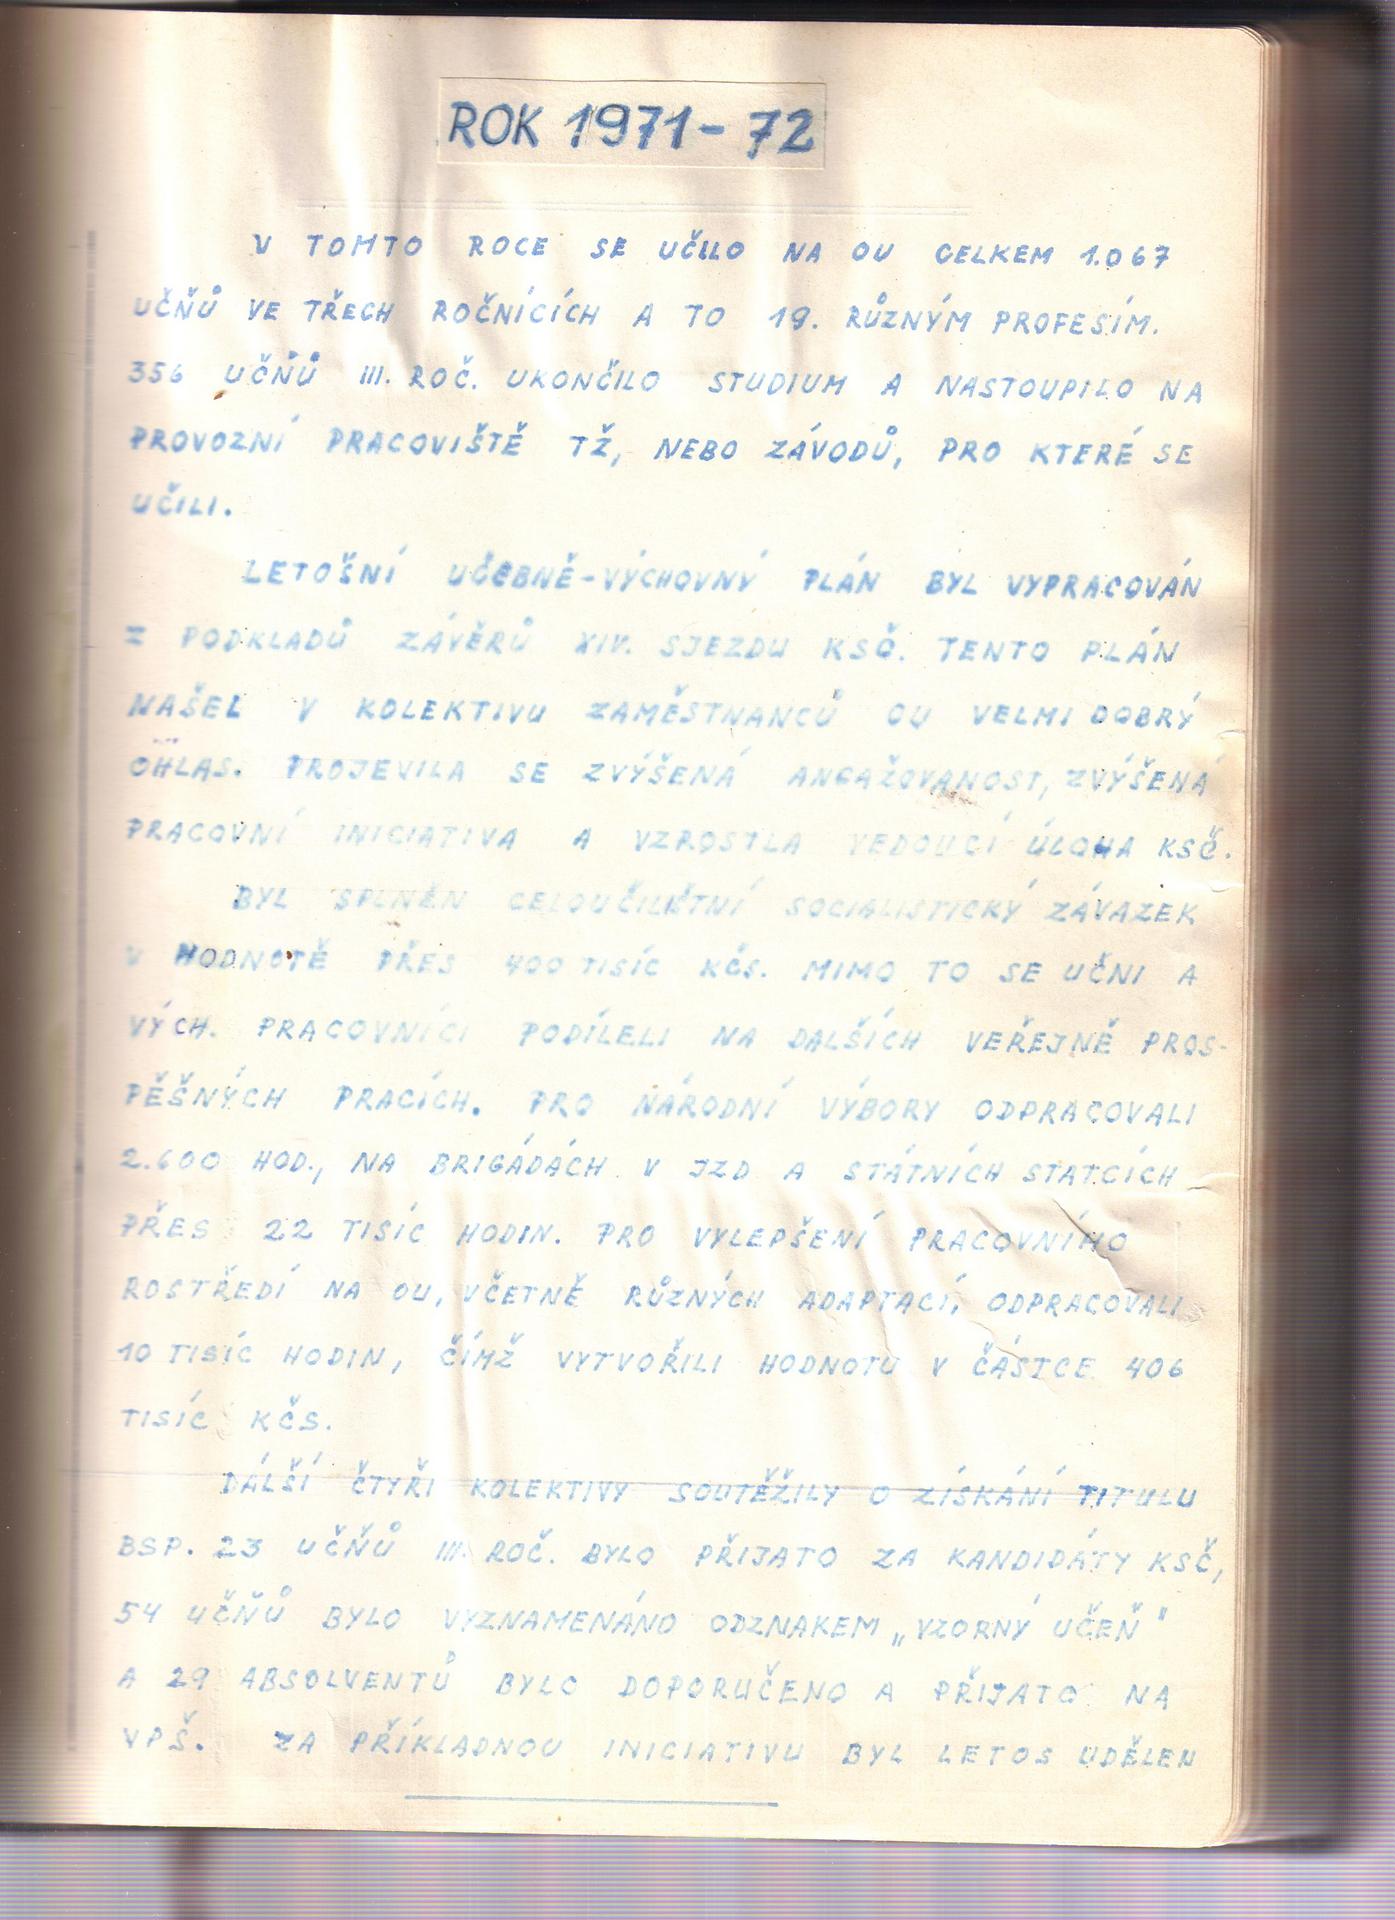 ROK 1971-72
V TOMTO ROCE SE UČILO NA OU CELKEM 1.067
UČŇŮ VE TŘECH ROČNÍCÍCH A TO 19. RŮZNÝM PROFESÍM.
356 UČŇŮ III. ROČ. UKONČILO STUDIUM A NASTOUPILO NA
PROVOZNÍ PRACOVIŠTĚ TŽ, NEBO ZÁVODŮ, PRO KTERÉ SE
UČILI.
LETOŠNÍ UČEBNĚ-VÝCHOVNÝ PLÁN BYL VYPRACOVÁN
Z PODKLADŮ ZÁVĚRŮ XIV. SJEZDU KSČ. TENTO PLÁN
NAŠEL V KOLEKTIVU ZAMĚSTNANCŮ OU VELMI DOBRÝ
OHLAS. PROJEVILA SE ZVÝŠENÁ ANGAŽOVANOST, ZVÝŠENÁ
PRACOVNÍ INICIATIVA A VZROSTLA VEDOUCÍ ÚLOHA KSČ.
BYL SPLNĚN CELOUČILIŠTNÍ SOCIALISTICKÝ ZÁVAZEK
V HODNOTĚ PŘES 400 TISÍC KČS. MIMO TO SE UČNI A
VÝCH. PRACOVNÍCI PODÍLELI NA DALŠÍCH VEŘEJNĚ PROS-
PĚŠNÝCH PRACÍCH. PRO NÁRODNÍ VÝBORY ODPRACOVALI
2.600 HOD., NA BRIGÁDÁCH V JZD A STÁTNÍCH STATCÍCH
PŘES 22 TISÍC HODIN. PRO VYLEPŠENÍ PRACOVNÍHO
ROSTŘEDÍ NA OU, VČETNĚ RŮZNÝCH ADAPTACÍ, ODPRACOVALI
10 TISÍC HODIN, ČÍMŽ VYTVOŘILI HODNOTU V ČÁSTCE 406
TISÍC KČS.
DALŠÍ ČTYŘI KOLEKTIVY SOUTĚŽILY O ZÍSKÁNÍ TITULU
BSP. 23 UČŇŮ III. ROČ. BYLO PŘIJATO ZA KANDIDÁTY KSČ,
54 UČŇŮ BYLO VYZNAMENÁNO ODZNAKEM „VZORNÝ UČEŇ"
A 29 ABSOLVENTŮ BYLO DOPORUČENO A PŘIJATO NA
VPŠ. ZA PŘÍKLADNOU INICIATIVU BYL LETOS UDĚLEN